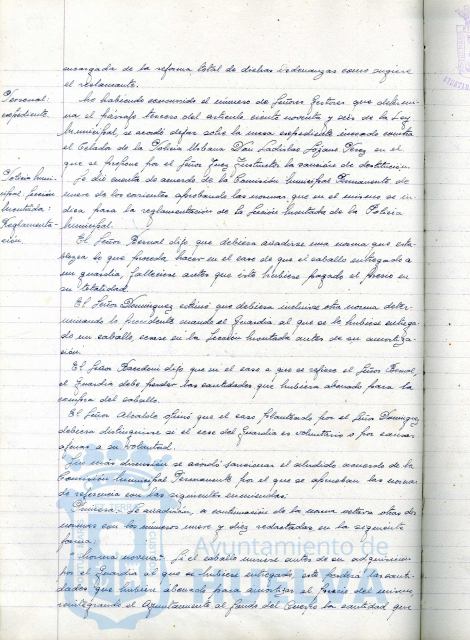 encargada de la reforma total de dichas Ordenanzas como sugiere
el reclamante.
Personal:
expediente.
No habiendo concurrido el número de Señores Gestores que determi-
na el párrafo tercero del artículo ciento noventa y seis de la Ley
Municipal, se acordó dejar sobre la mesa expediente incoado contra
el Celador de la Policía Urbana Don Ladislao Lozano Pérez en el
que se propone por el Señor Juez Instructor la sanción de destitución.
Policía Muni-
cipal. Sección
Montada:
Reglamenta-
ción.
Se dió cuenta de acuerdo de la Comisión Municipal Permanente de
nueve de los corrientes aprobando las normas que en el mismo se in-
dica para la reglamentación de la Sección Montada de la Policía
Municipal.
El Señor Bernal dijo que debiera añadirse una norma que esta-
blezca lo que proceda hacer en el caso de que el caballo entregado a
un guardia, falleciese antes que éste hubiese pagado el precio en
su totalidad.
El Señor Domínguez estimó que debiera incluirse otra norma deter-
minando lo procedente cuando el Guardia al que se le hubiese entrega-
do un caballo, cesase en la Sección Montada antes de su amortiza-
ción.
El Señor dijo que en el caso a que se refiere el Señor Bernal,
el Guardia debe perder las cantidades que hubiera abonado para la
compra del caballo.
El Señor Alcalde opinó que el caso planteado por el Señor Domínguez
debiera distinguirse si el cese del Guardia es voluntario o por causas
ajenas a su voluntad.
Sin más discusión se acordó sancionar el aludido acuerdo de la
Comisión Municipal Permanente por el que se aprueban las normas
de referencia con las siguientes enmiendas:
Primera: Se añadirán, a continuación de la norma octava otras dos
normas con los números nueve y diez redactadas en la siguiente
forma:
"Norma novena.- Si el caballo muriese antes de su adquisición
por el Guardia al que se hubiese entregado, éste perderá las canti-
dades que hubiere abonado para amortizar el precio del mismo,
reintegrando el Ayuntamiento al fondo del Cuerpo la cantidad que
Ayuntamiento de